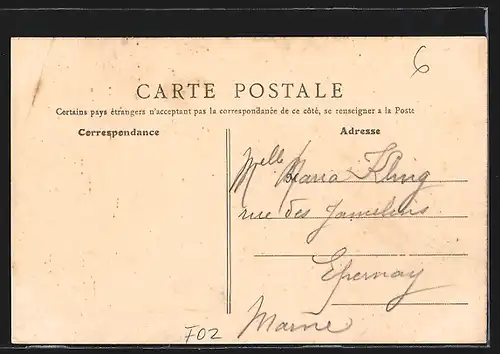 6
CARTE POSTALE
Certains pays étrangers n'acceptant pas la correspondance de ce côté, se renseigner a la Poste
Correspondance
Adresse
Melle Maria Kling
rue des
Epernay
Marne
F02